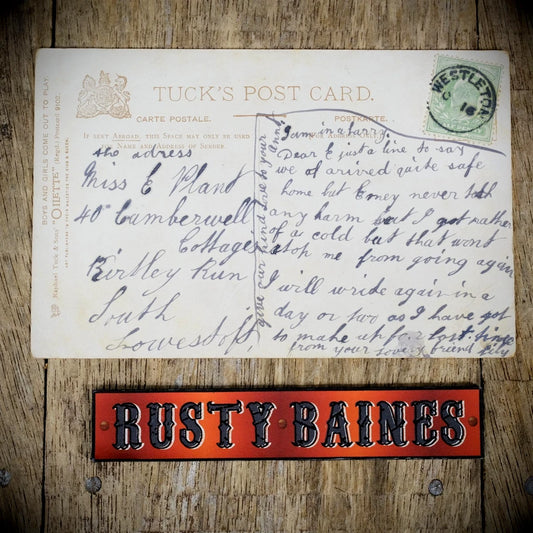 TUCK'S POST CARD.
CARTE POSTALE. POSTKARTE.
IF SENT ABROAD, THIS SPACE MAY ONLY BE USED
NAME AND ADDRESS OF SENDER.
BOYS AND GIRLS COME OUT TO PLAY.
Raphael Tuck & Sons' "OILETTE" (Regd.) Postcard 9102.
WESTLETON
the adress
Miss E Plant
40 Camberwell
Cottages
Kirtley Run
South
Lowestoft
I am in a hurry
Dear E just a line to say
we of arived quite safe
home but Emey never took
any harm but I got rather
of a cold but that wont
stop me from going again
I will write again in a
day or two as I have got
to make up for lost time
from your friend Lily
give our kind love to your
Aunt
RUSTY BAINES